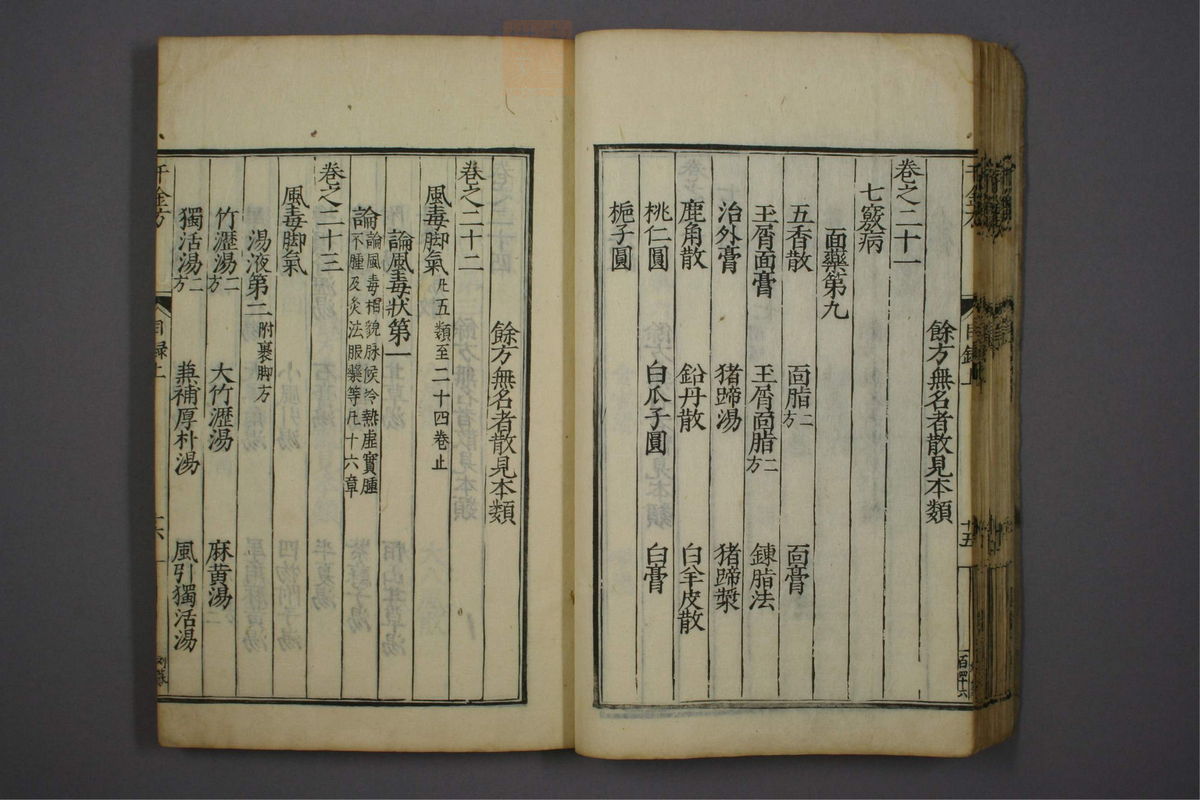 餘方無名者散見本類
卷之二十一
七竅病
面藥第九
五香散 面脂二方 面膏
玉屑面膏 玉屑面脂二方 鍊脂法
治外膏 猪蹄湯 猪蹄漿
鹿角散 鉛丹散 白羊皮散
桃仁圓 白瓜子圓 白膏
梔子圓
千金方 目録上 十五
餘方無名者散見本類
卷之二十二
風毒脚氣凡五類至二十四卷止
論風毒狀第一
論論風毒相貌脉候冷熱虚實腫
不腫及灸法服藥等凡十六章
卷之二十三
風毒脚氣
湯液第二附裹脚方
竹瀝湯二方 大竹瀝湯 麻黄湯二
獨活湯二方 兼補厚朴湯 風引獨活湯
千金方 目録上 十六